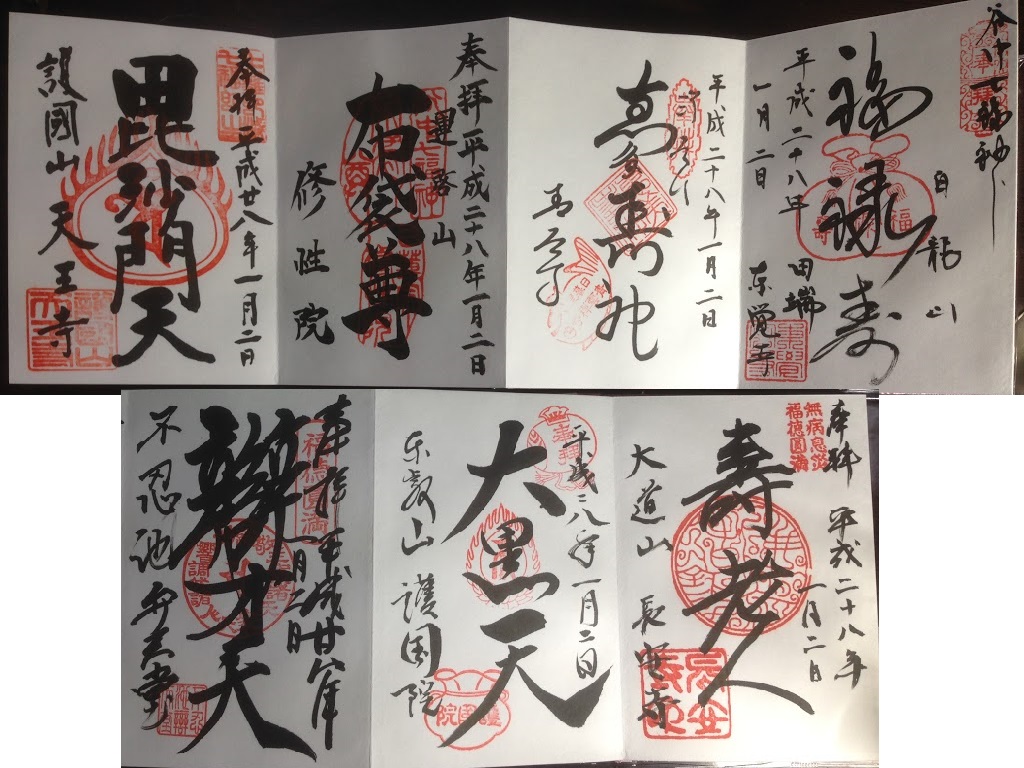 谷中七福神
白龍山
福禄寿
平成二十八年
一月二日
田端
東覚寺
平成二十八年一月二日
寿神
青雲寺
奉拝 平成二十八年一月二日
運啓山
布袋尊
修性院
奉拝 平成廿八年一月二日
毘沙門天
護國山 天王寺
奉拝 平成二十八年
一月二日
無病息災
福徳圓満
壽老人
大道山 長安寺
平成二八年一月二日
大黒天
東叡山 護国院
護國院
奉拝 平成廿八年
一月二日
福徳圓満
辯才天
不忍池弁天堂